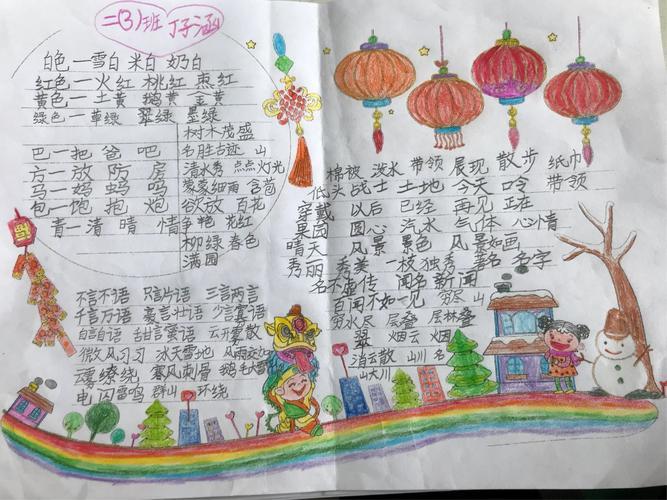 二(3)班 丁子涵
白色—雪白 米白 奶白
红色—火红 桃红 枣红
黄色—土黄 鹅黄 金黄
绿色—草绿 翠绿 墨绿
巴—把 爸 吧
方—放 防 房
马—妈 蚂 吗
包—饱 抱 炮
青—清 晴 情
树木茂盛
名胜古迹 山
清水秀 点点灯光
蒙蒙细雨 含苞
欲放 百花
争艳 花红
柳绿 春色
满园
不言不语 只言片语 三言两语
千言万语 豪言壮语 少言寡语
自言自语 甜言蜜语 云开雾散
微风习习 冰天雪地 风雨
云雾缭绕 寒风刺骨 鹅毛大雪
电闪雷鸣 群山 环绕
棉被 泼水 带领 展现 散步 纸巾
低头 战士 土地 今天 吟 带领
穿戴 以后 已经 再见 正在
果园 圆心 汽水 气体 心情
晴天 风景 景色 风景如画
秀丽 秀美 一枝独秀 著名 名字
名不虚传 闻名 新闻
百闻不如一见 穷尽 山
穷水尽 层叠 层林叠
翠 烟云 烟
消云散 山川 名
山大川